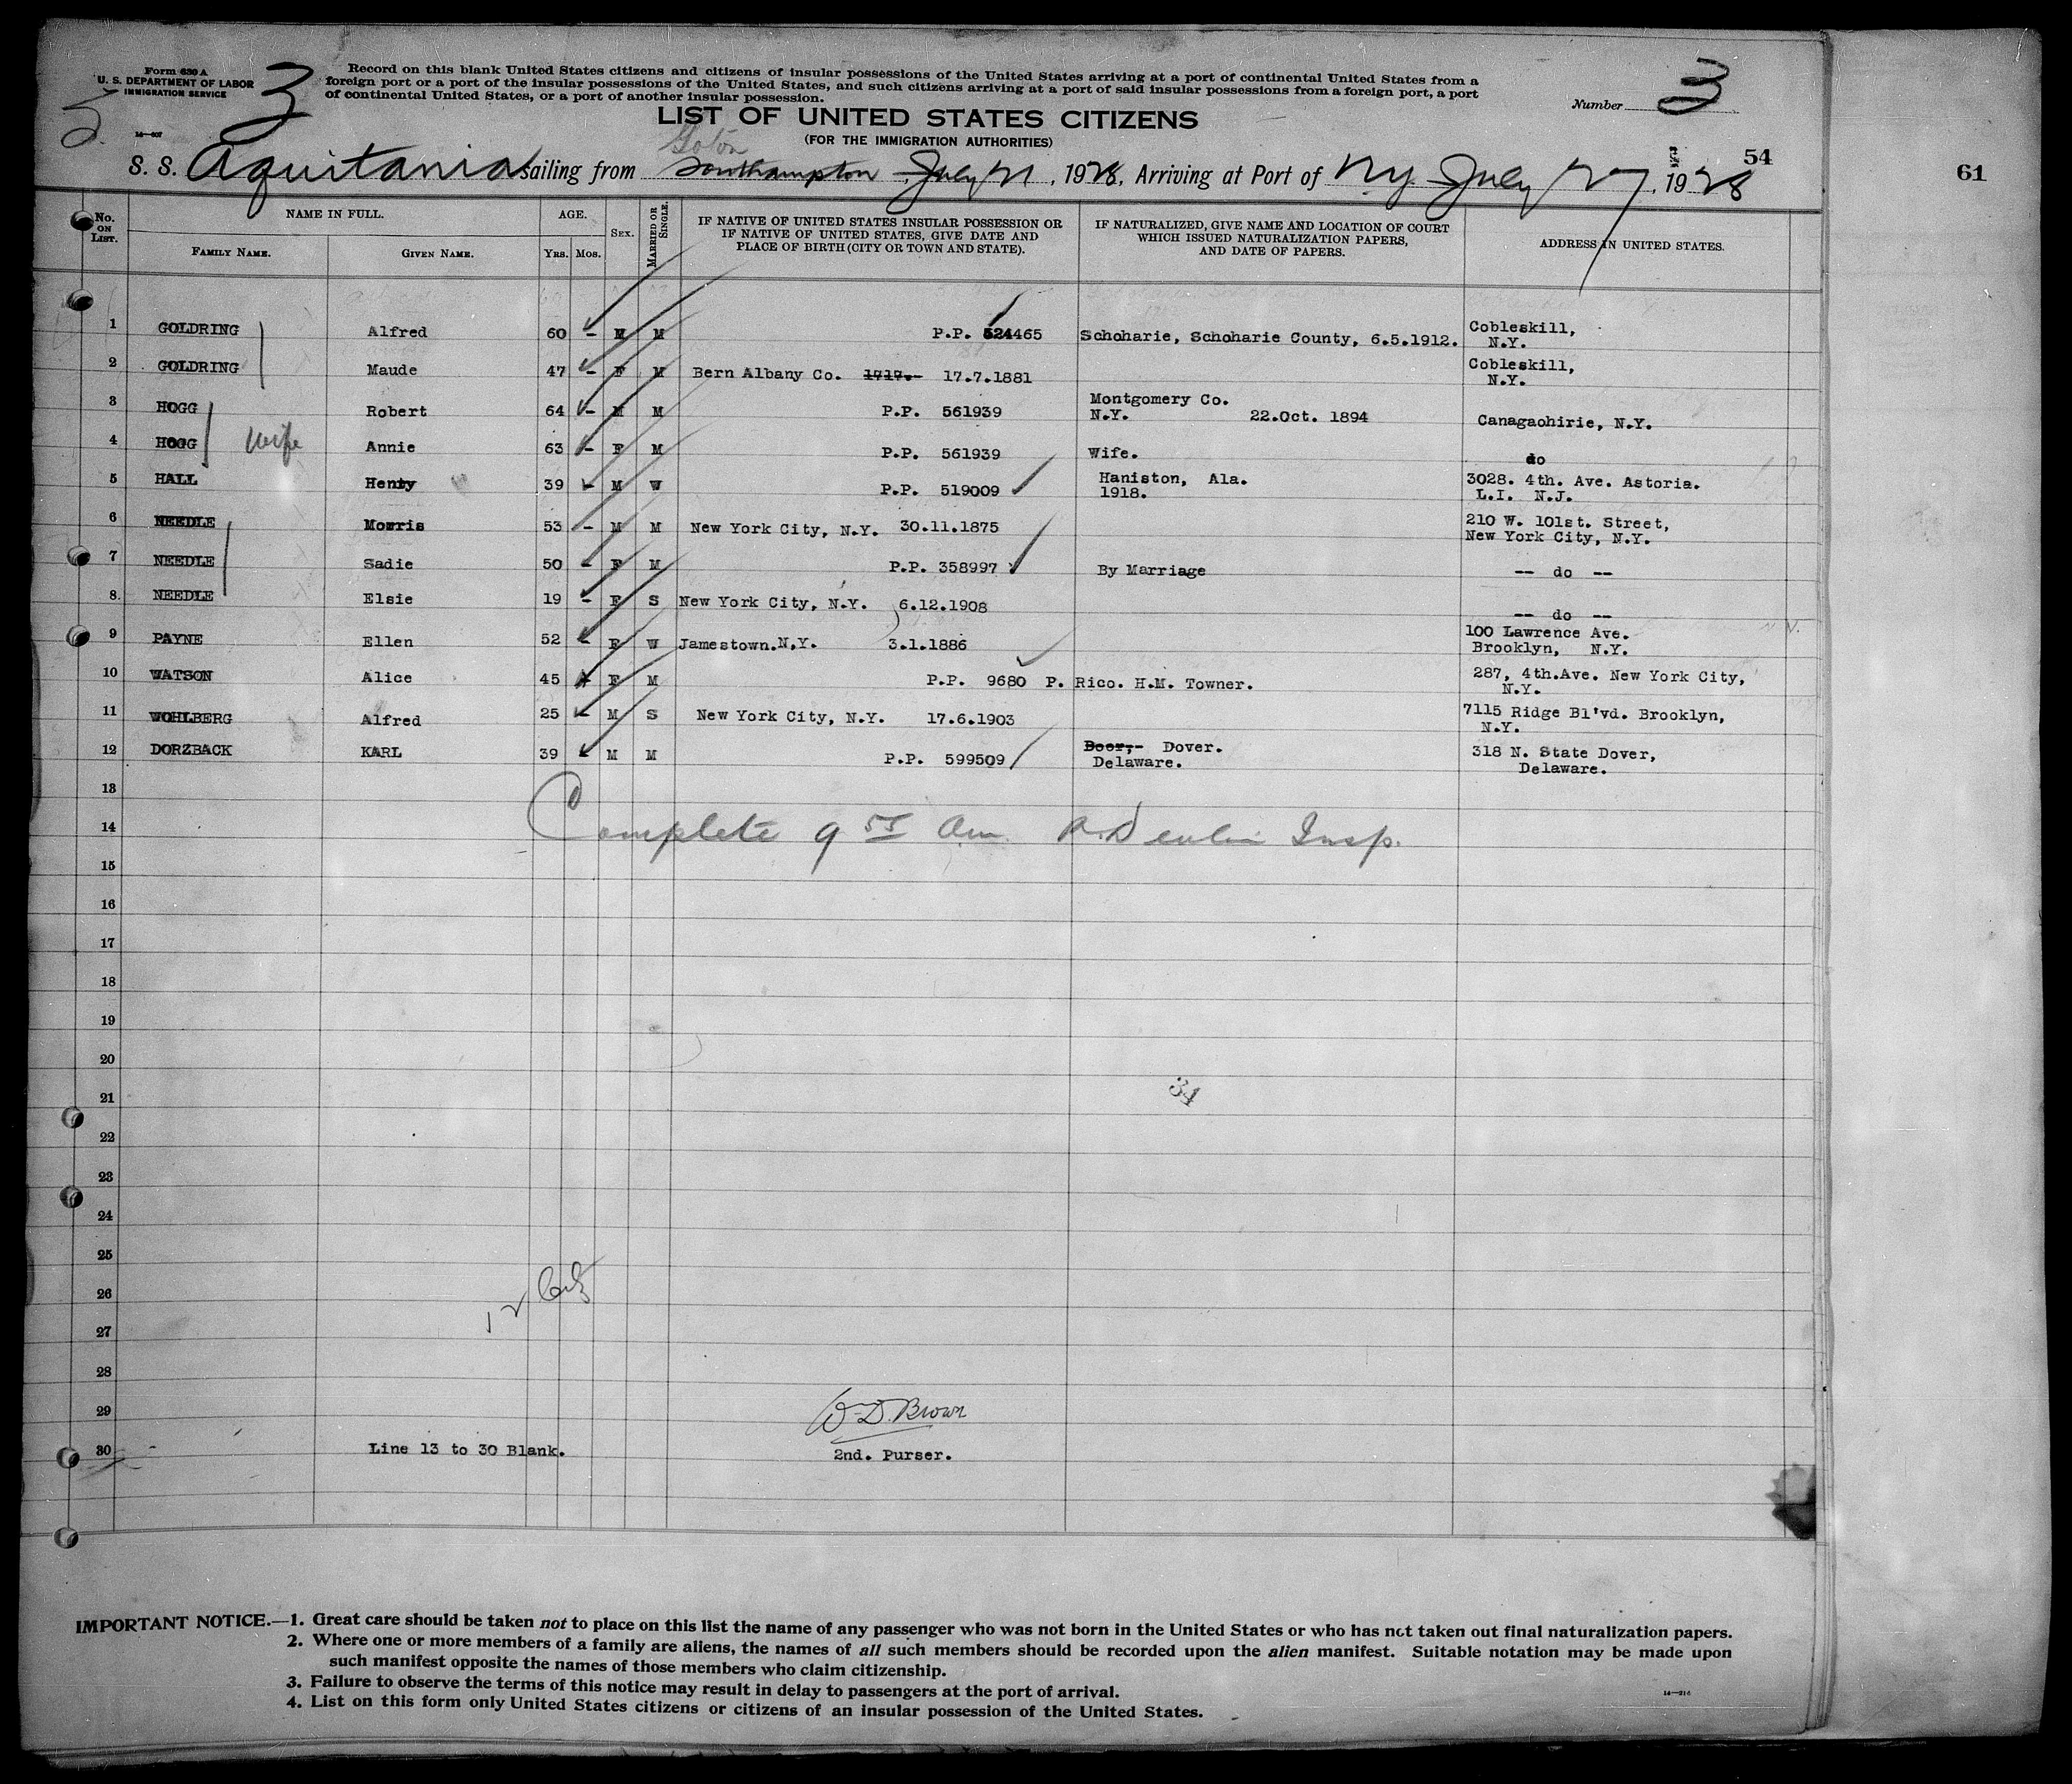 Form 630 A
U. S. DEPARTMENT OF LABOR
IMMIGRATION SERVICE
3
5
14—607
Record on this blank United States citizens and citizens of insular possessions of the United States arriving at a port of continental United States from a
foreign port or a port of the insular possessions of the United States, and such citizens arriving at a port of said insular possessions from a foreign port, a port
of continental United States, or a port of another insular possession.
Number 3
LIST OF UNITED STATES CITIZENS
(FOR THE IMMIGRATION AUTHORITIES)
54
61
S. S. Aquitania Sailing from Southampton July 21, 1928, Arriving at Port of NY July 27, 1928
No. ON LIST. NAME IN FULL. AGE. SEX. MARRIED OR SINGLE. IF NATIVE OF UNITED STATES INSULAR POSSESSION OR IF NATIVE OF UNITED STATES, GIVE DATE AND PLACE OF BIRTH (CITY OR TOWN AND STATE). IF NATURALIZED, GIVE NAME AND LOCATION OF COURT WHICH ISSUED NATURALIZATION PAPERS, AND DATE OF PAPERS. ADDRESS IN UNITED STATES.
FAMILY NAME. GIVEN NAME. YRS. MOS.
1 GOLDRING Alfred 60 - M M P.P. 524465 Schoharie, Schoharie County, 6.5.1912. Cobleskill, N.Y.
2 GOLDRING Maude 47 - F M Bern Albany Co. 1717.- 17.7.1881 Cobleskill, N.Y.
3 HOGG Robert 64 - M M P.P. 561939 Montgomery Co. N.Y. 22.Oct. 1894 Canagaohirie, N.Y.
4 HOGG wife Annie 63 - F M P.P. 561939 Wife. do
5 HALL Henry 39 - M W P.P. 519009 Haniston, Ala. 1918. 3028. 4th. Ave. Astoria. L.I. N.J.
6 NEEDLE Morris 53 - M M New York City, N.Y. 30.11.1875 210 W. 101st. Street, New York City, N.Y.
7 NEEDLE Sadie 50 - F M P.P. 358997 By Marriage -- do --
8. NEEDLE Elsie 19 - F S New York City, N.Y. 6.12.1908 -- do --
9 PAYNE Ellen 52 - F W Jamestown.N.Y. 3.1.1886 100 Lawrence Ave. Brooklyn, N.Y.
10 WATSON Alice 45 F M P.P. 9680 P. Rico. H.M. Towner. 287, 4th.Ave. New York City, N.Y.
11 WOHLBERG Alfred 25 - M S New York City, N.Y. 17.6.1903 7115 Ridge Bl'vd. Brooklyn, N.Y.
12 DORZBACK KARL 39 M M P.P. 599509 Boor,- Dover. Delaware. 318 N. State Dover, Delaware.
13
14 Complete 9 55 am. Insp.
15
16
17
18
19
20
21 34
22
23
24
25
26 12
27
28
29 W.D. Brown
30 Line 13 to 30 Blank. 2nd. Purser.
IMPORTANT NOTICE.—1. Great care should be taken not to place on this list the name of any passenger who was not born in the United States or who has not taken out final naturalization papers.
2. Where one or more members of a family are aliens, the names of all such members should be recorded upon the alien manifest. Suitable notation may be made upon
such manifest opposite the names of those members who claim citizenship.
3. Failure to observe the terms of this notice may result in delay to passengers at the port of arrival.
4. List on this form only United States citizens or citizens of an insular possession of the United States.